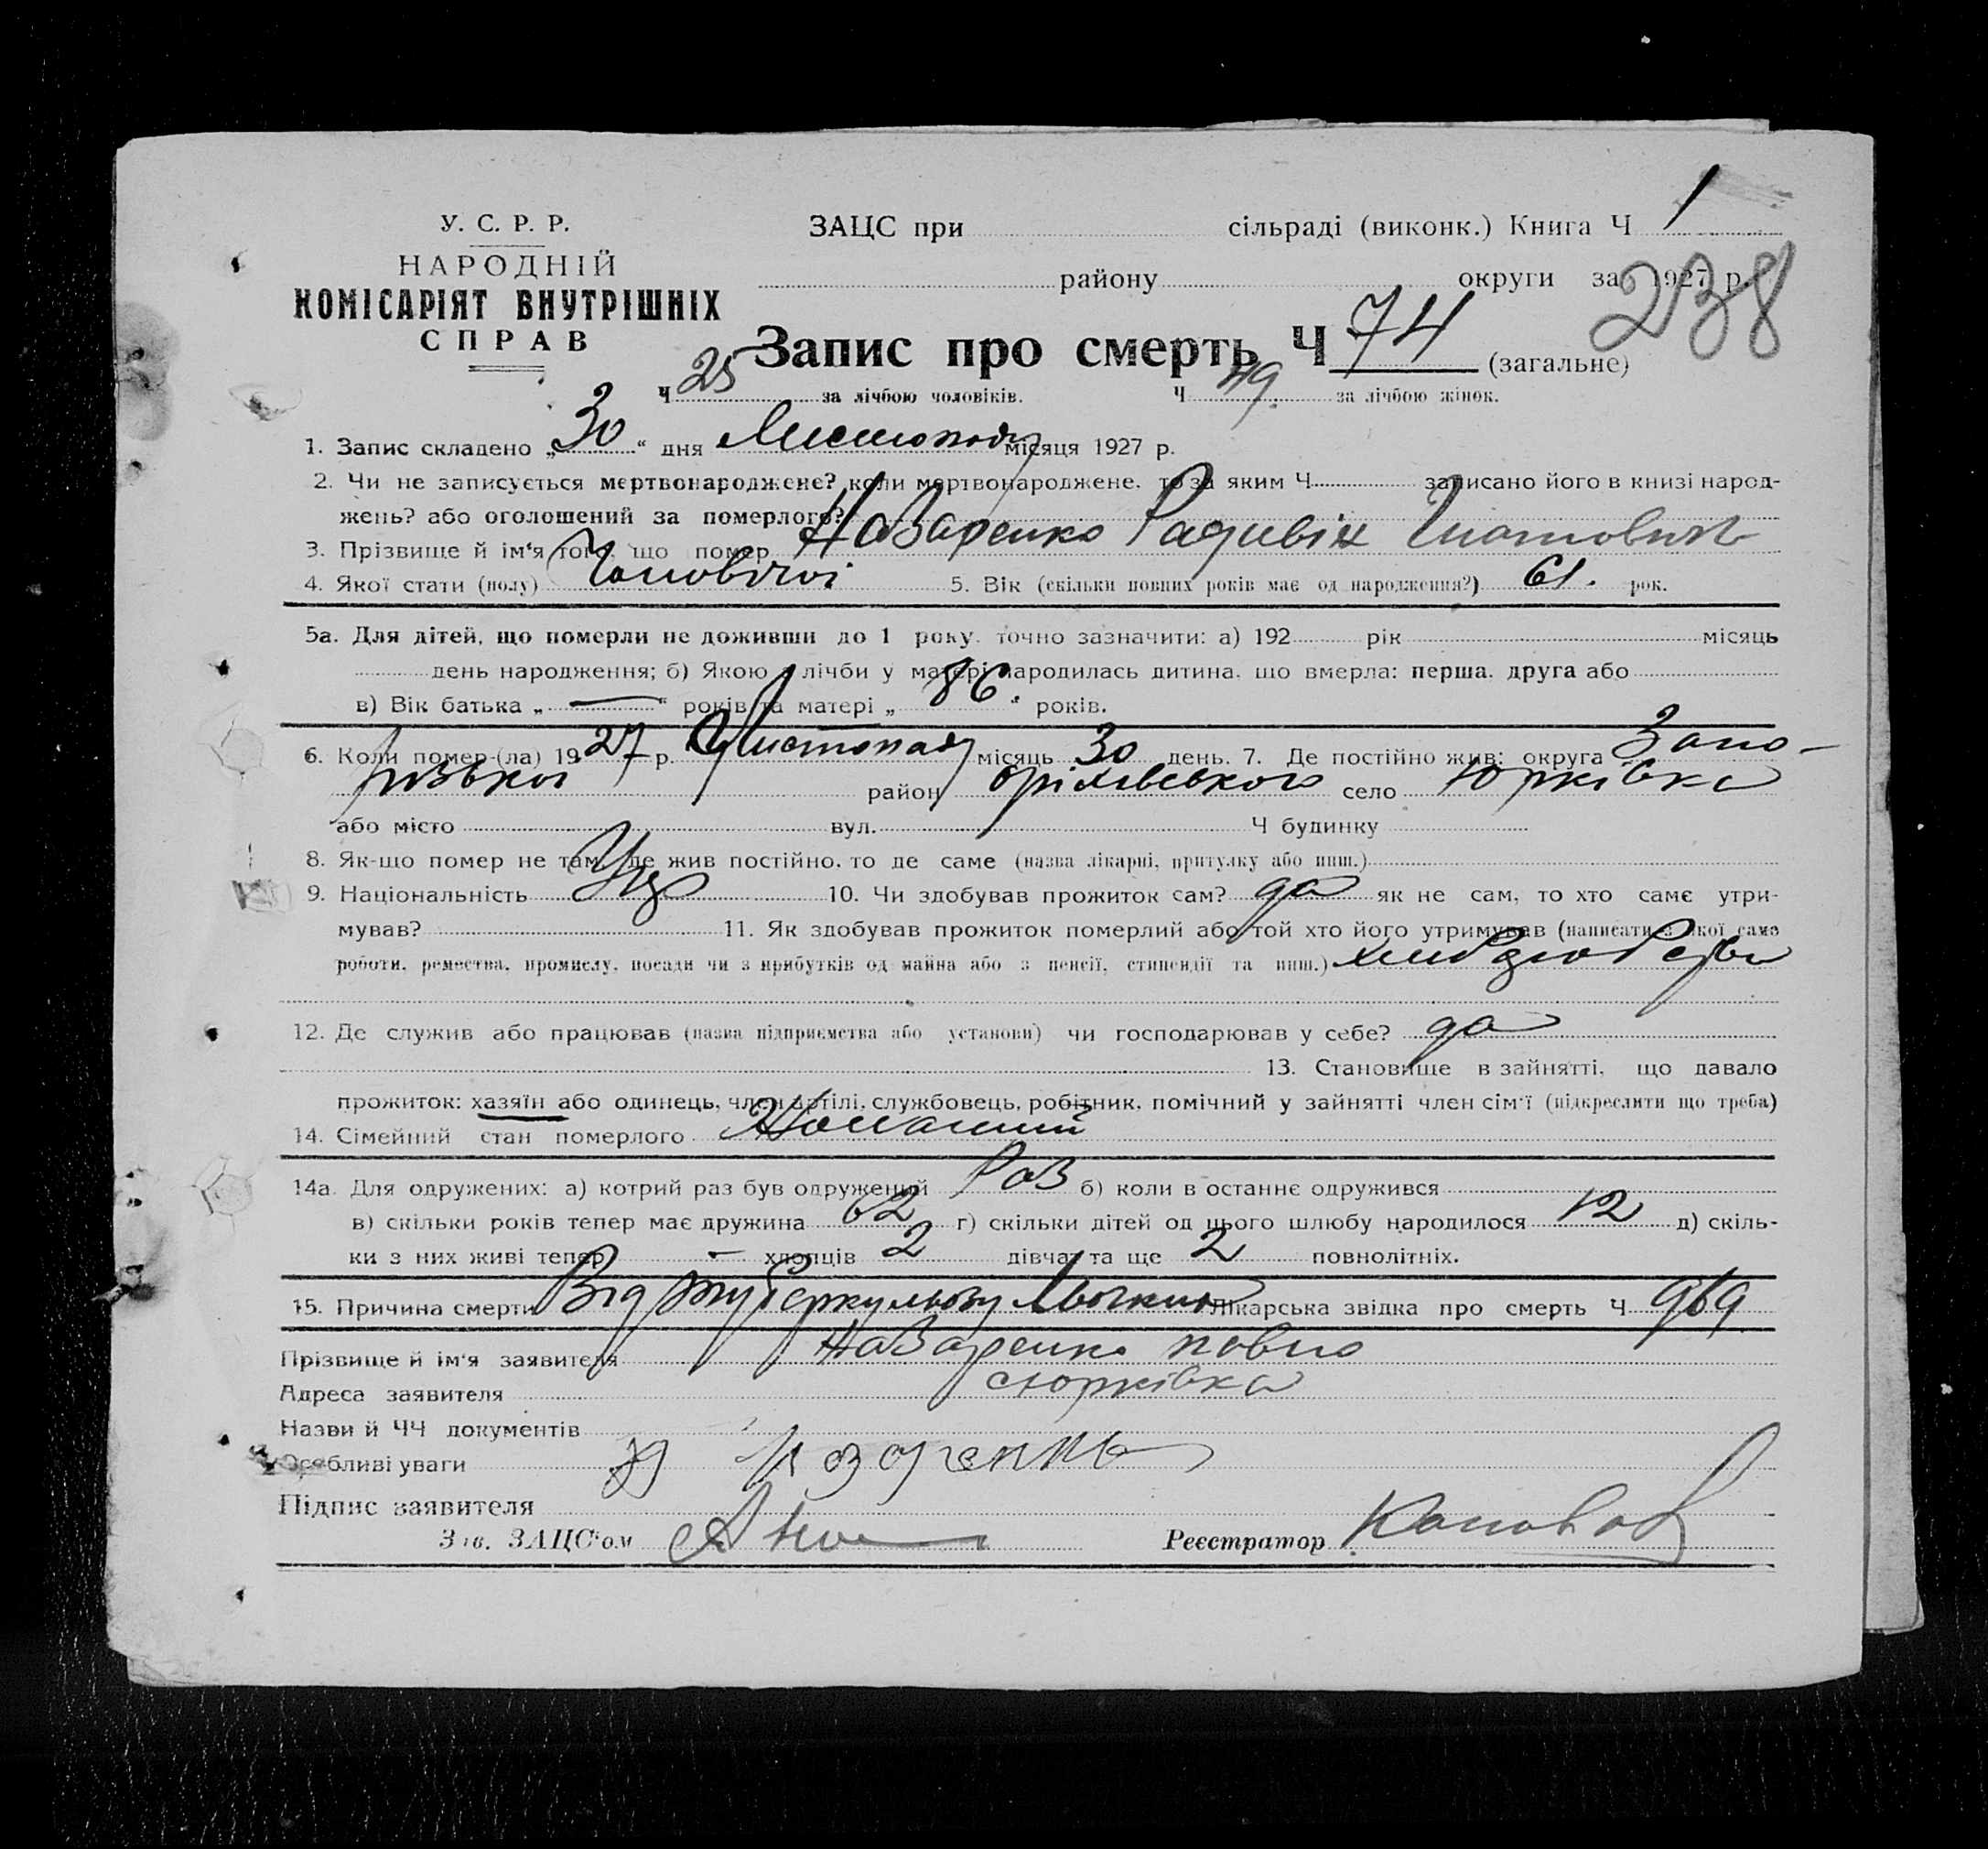 У. С. Р. Р.
НАРОДНІЙ
КОМІСАРІЯТ ВНУТРІШНІХ
СПРАВ
ЗАЦС при сільраді (виконк.) Книга Ч 1
району округи за 1927 р.
238
Запис про смерть Ч 74 (загальне)
Ч 25 за лічбою чоловіків. Ч 49. за лічбою жінок.
1. Запис складено „30“ дня Листопаду місяця 1927 р.
2. Чи не записується мертвонароджене? коли мертвонароджене, то за яким Ч записано його в книзі народ-
жень? або оголошений за померлого?
3. Прізвище й ім'я того, що помер Назаренко Радивін
4. Якої стати (полу) 5. Вік (скільки повних років має од народження?) 61. рок.
5а. Для дітей, що померли не доживши до 1 року точно зазначити: а) 192 рік місяць
день народження; б) Якою з лічби у матері народилась дитина, що вмерла: перша, друга або
в) Вік батька „ — “ років та матері „ 86. “ років.
6. Коли помер (ла) 1927 р. Листопаду місяць 30 день. 7. Де постійно жив: округа Запо-
різької район Оріхівського село Юрківка
або місто вул. Ч будинку
8. Як-що помер не там, де жив постійно, то де саме (назва лікарні, притулку або инш.)
9. Національність Укр 10. Чи здобував прожиток сам? да як не сам, то хто саме утри-
мував? 11. Як здобував прожиток померлий або той хто його утримував (написати з якої само
роботи, ремества, промислу, посади чи з прибутків од майна або з пенсії, стипендії та инш.)
12. Де служив або працював (назва підприємства або установи) чи господарював у себе? да
13. Становище в зайнятті, що давало
прожиток: хазяїн або одинець, член артілі, службовець, робітник, помічний у зайнятті член сім'ї (підкреслити що треба)
14. Сімейний стан померлого
14а. Для одружених: а) котрий раз був одружений Раз б) коли в останнє одружився
в) скільки років тепер має дружина 62 г) скільки дітей од цього шлюбу народилося 12 д) скіль-
ки з них живі тепер – хлопців 2 дівчат та ще 2 повнолітніх.
15. Причина смерти Від туберкульозу Лікарська звідка про смерть Ч 969
Прізвище й ім'я заявителя Назаренко Павло
Адреса заявителя с Юрківка
Назви й ЧЧ документів
Особливі уваги
Підпис заявителя
Зав. ЗАЦС'ом Реєстратор